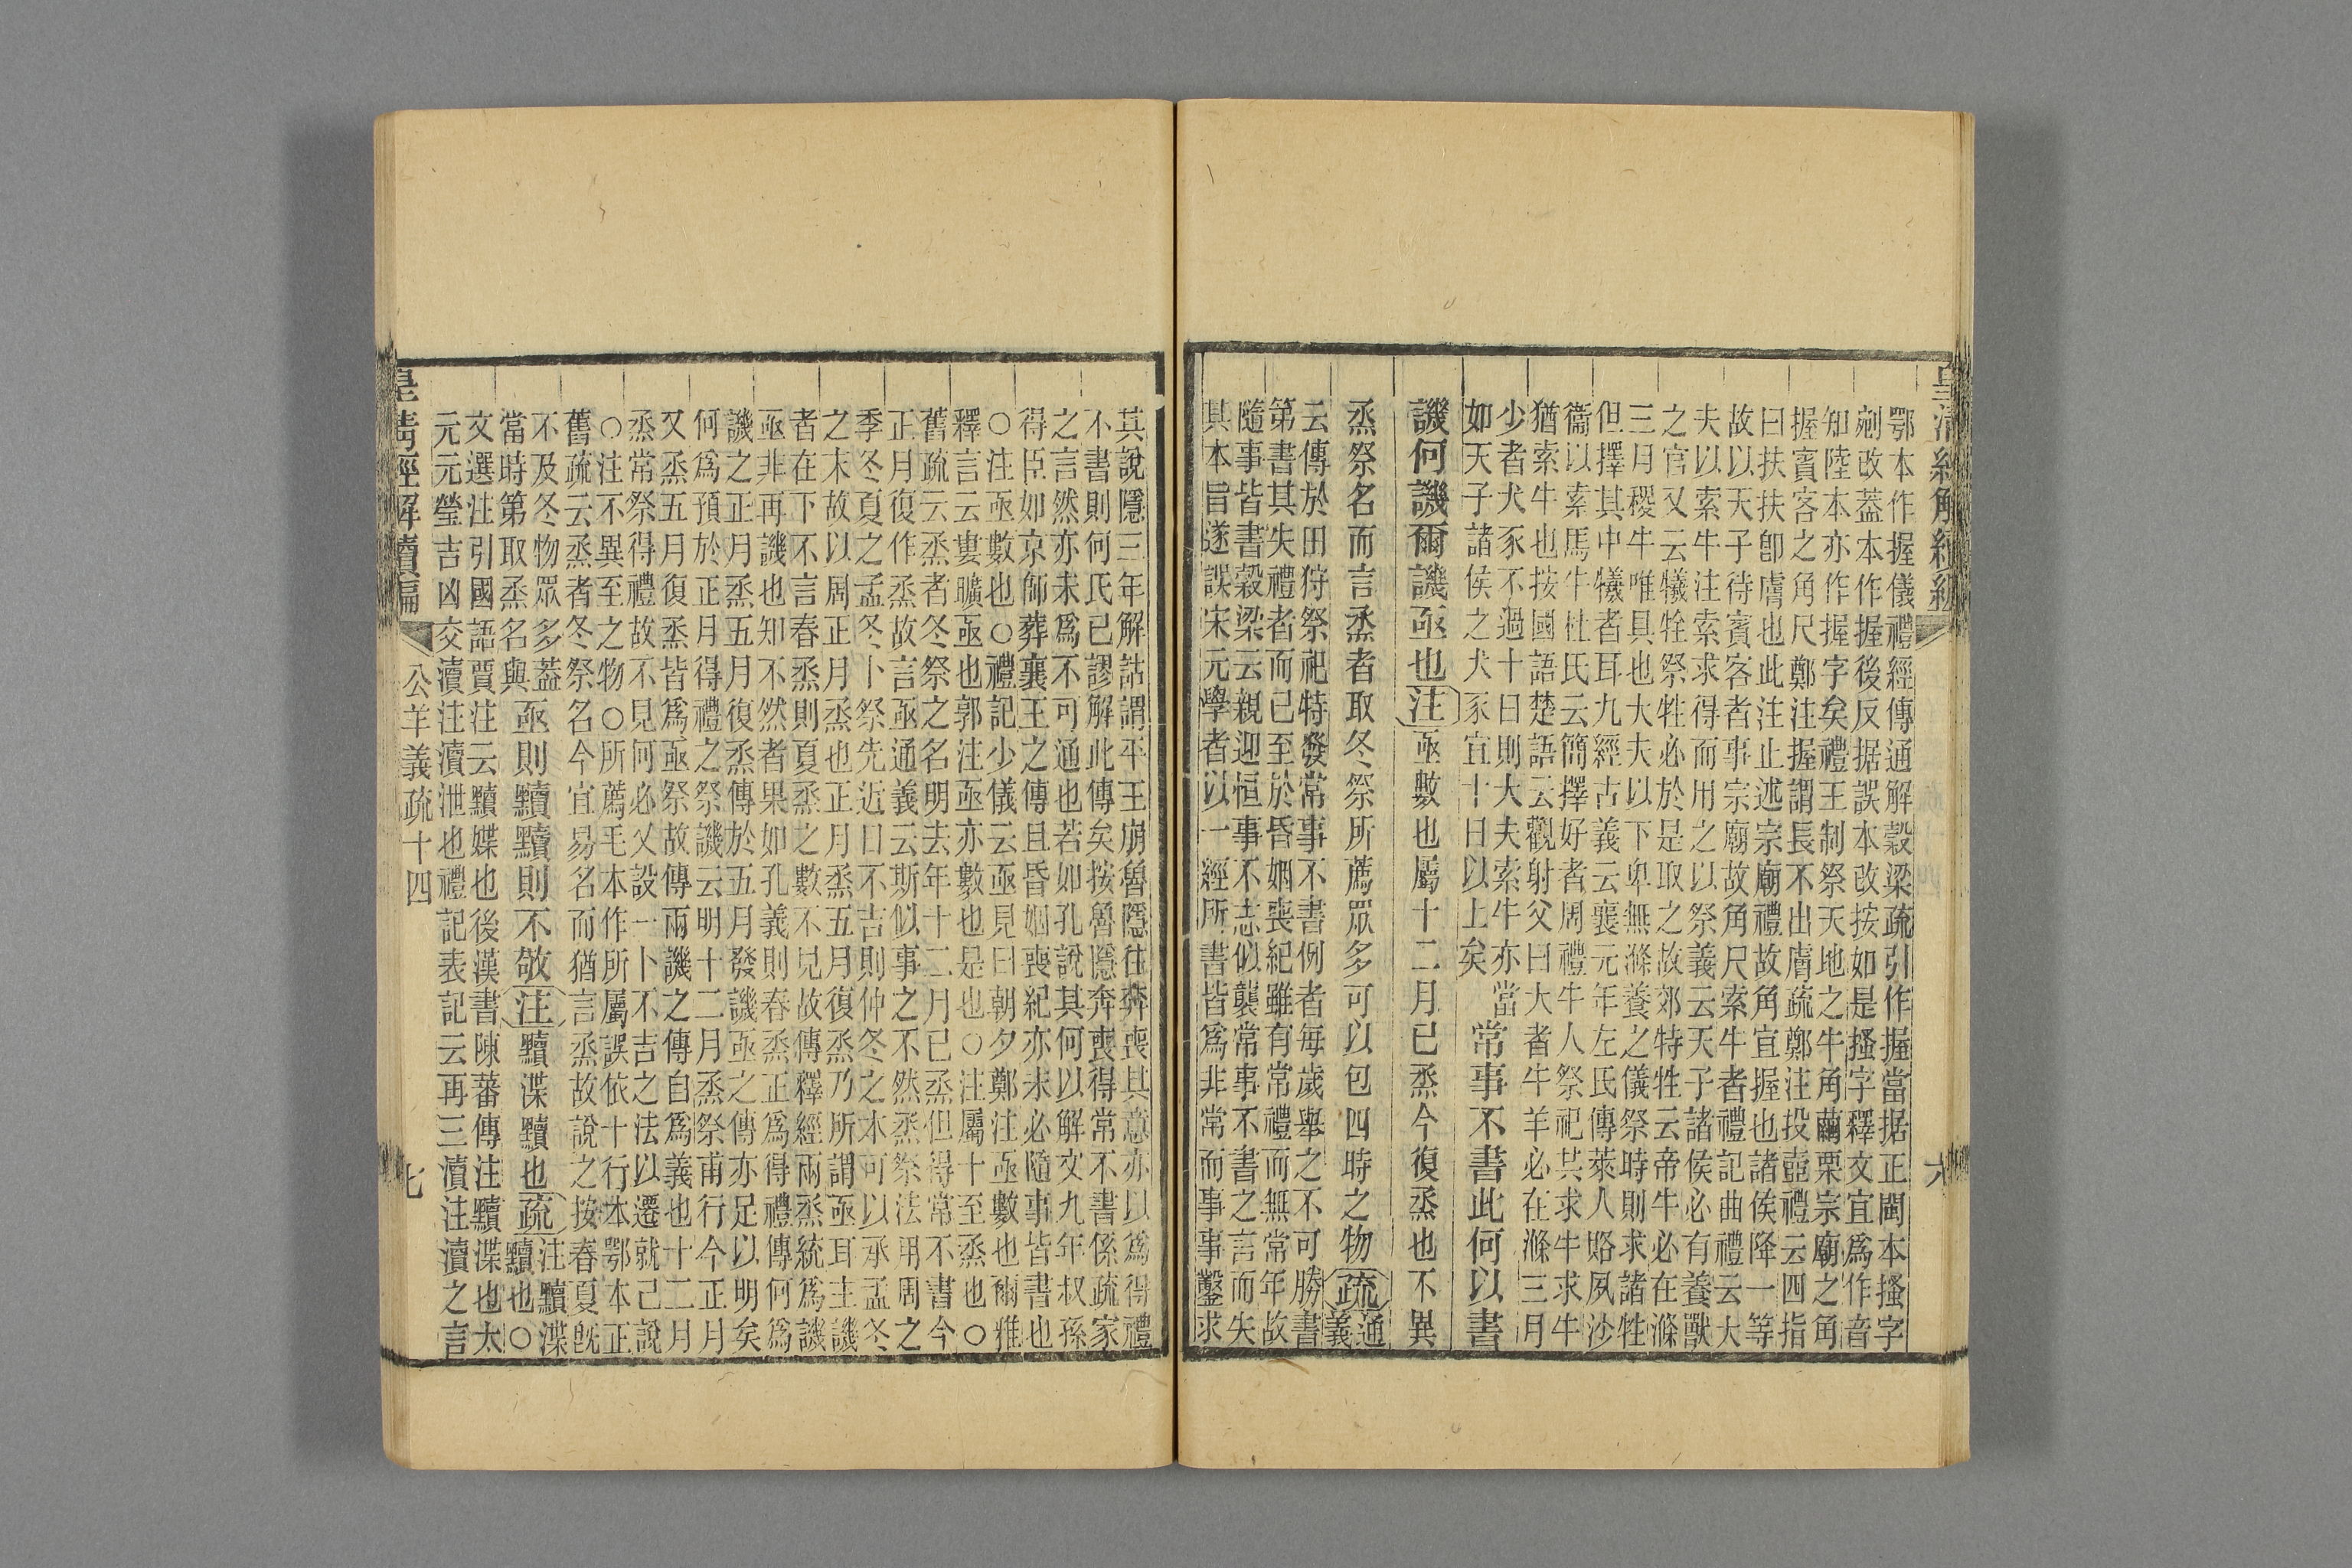 皇清經解續編
六
鄂本作握儀禮經傳通解穀梁疏引作握當据正閩本搔字
剜改蓋本作握後反据誤本改按如是搔字釋文宜爲作音
知陸本亦作握字矣禮王制祭天地之牛角繭栗宗廟之角
握賓客之角尺鄭注握謂長不出膚疏鄭注投壺禮云四指
曰扶扶卽膚也此注止述宗廟禮故角宜握也諸侯降一等
故以天子待賓客者事宗廟故角尺索牛者禮記曲禮云大
夫以索牛注索求得而用之以祭義云天子諸侯必有養獸
之官又云犧牷祭牲必於是取之故郊特牲云帝牛必在滌
三月稷牛唯具也大夫以下卑無滌養之儀祭時則求諸牲
但擇其中犧者耳九經古義云襄元年左氏傳萊人賂夙沙
衞以索馬牛杜氏云簡擇好者周禮牛人祭祀共求牛求牛
猶索牛也按國語楚語云觀射父曰大者牛羊必在滌三月
少者犬豕不過十日則大夫索牛亦當
如天子諸侯之犬豕宜十日以上矣
常事不書此何以書
譏何譏爾譏亟也注亟數也屬十二月已烝今復烝也不異
烝祭名而言烝者取冬祭所薦眾多可以包四時之物疏通
義
云傳於田狩祭祀特發常事不書例者每歲舉之不可勝書
第書其失禮者而已至於昏姻喪紀雖有常禮而無常年故
隨事皆書穀梁云親迎恒事不志似襲常事不書之言而失
其本旨遂誤宋元學者以一經所書皆爲非常而事事鑿求
其說隱三年解詁謂平王崩魯隱往奔喪其意亦以爲得禮
不書則何氏已謬解此傳矣按魯隱奔喪得常不書係疏家
之言然亦未爲不可通也若如孔說其何以解文九年叔孫
得臣如京師葬襄王之傳且昏姻喪紀亦未必隨事皆書也
○注亟數也○禮記少儀云亟見曰朝夕鄭注亟數也爾雅
釋言云婁曠亟也郭注亟亦數也是也○注屬十至烝也○
舊疏云烝者冬祭之名明去年十二月已烝但得常不書今
正月復作烝故言亟通義云斯似事之不然烝祭法用周之
季冬夏之孟冬卜祭先近日不吉則仲冬之本可以承孟冬
之末故以周正月烝也正月烝五月復烝乃所謂亟耳主譏
者在下不言春烝則夏烝之數不見故傳釋經兩烝統爲譏
亟非再譏也知不然者果如孔義則春烝正爲得禮傳何爲
譏之正月烝五月復烝傳於五月發譏亟之傳亦足以明矣
何爲預於正月得禮之祭譏云明十二月烝祭甫行今正月
又烝五月復烝皆爲亟祭故傳兩譏之傳自爲義也十二月
烝常祭得禮故不見何必又設一卜不吉之法以遷就己說
○注不異至之物○所薦毛本作所屬誤依十行本鄂本正
舊疏云烝者冬祭名今宜易名而猶言烝故說之按春夏旣
不及冬物眾多蓋
當時第取烝名與
亟則黷黷則不敬注黷渫黷也疏注黷渫
黷也○
文選注引國語賈注云黷媟也後漢書陳蕃傳注黷渫也太
元元瑩吉凶交瀆注瀆泄也禮記表記云再三瀆注瀆之言
皇淸經解續編
公羊義疏十四
七